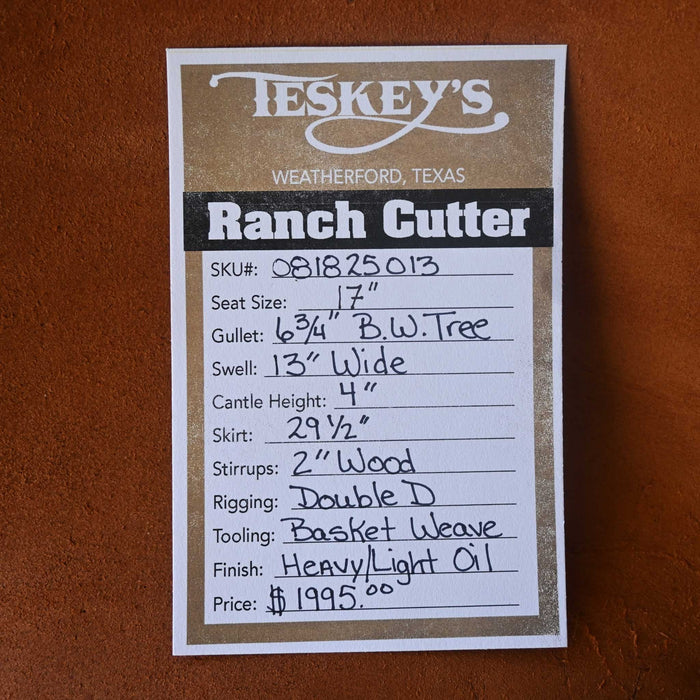 TESKEY'S
WEATHERFORD, TEXAS
Ranch Cutter
SKU#: 081825013
Seat Size: 17"
Gullet: 6 3/4" B.W. Tree
Swell: 13" Wide
Cantle Height: 4"
Skirt: 29 1/2"
Stirrups: 2" Wood
Rigging: Double D
Tooling: Basket Weave
Finish: Heavy/Light Oil
Price: $1995.00